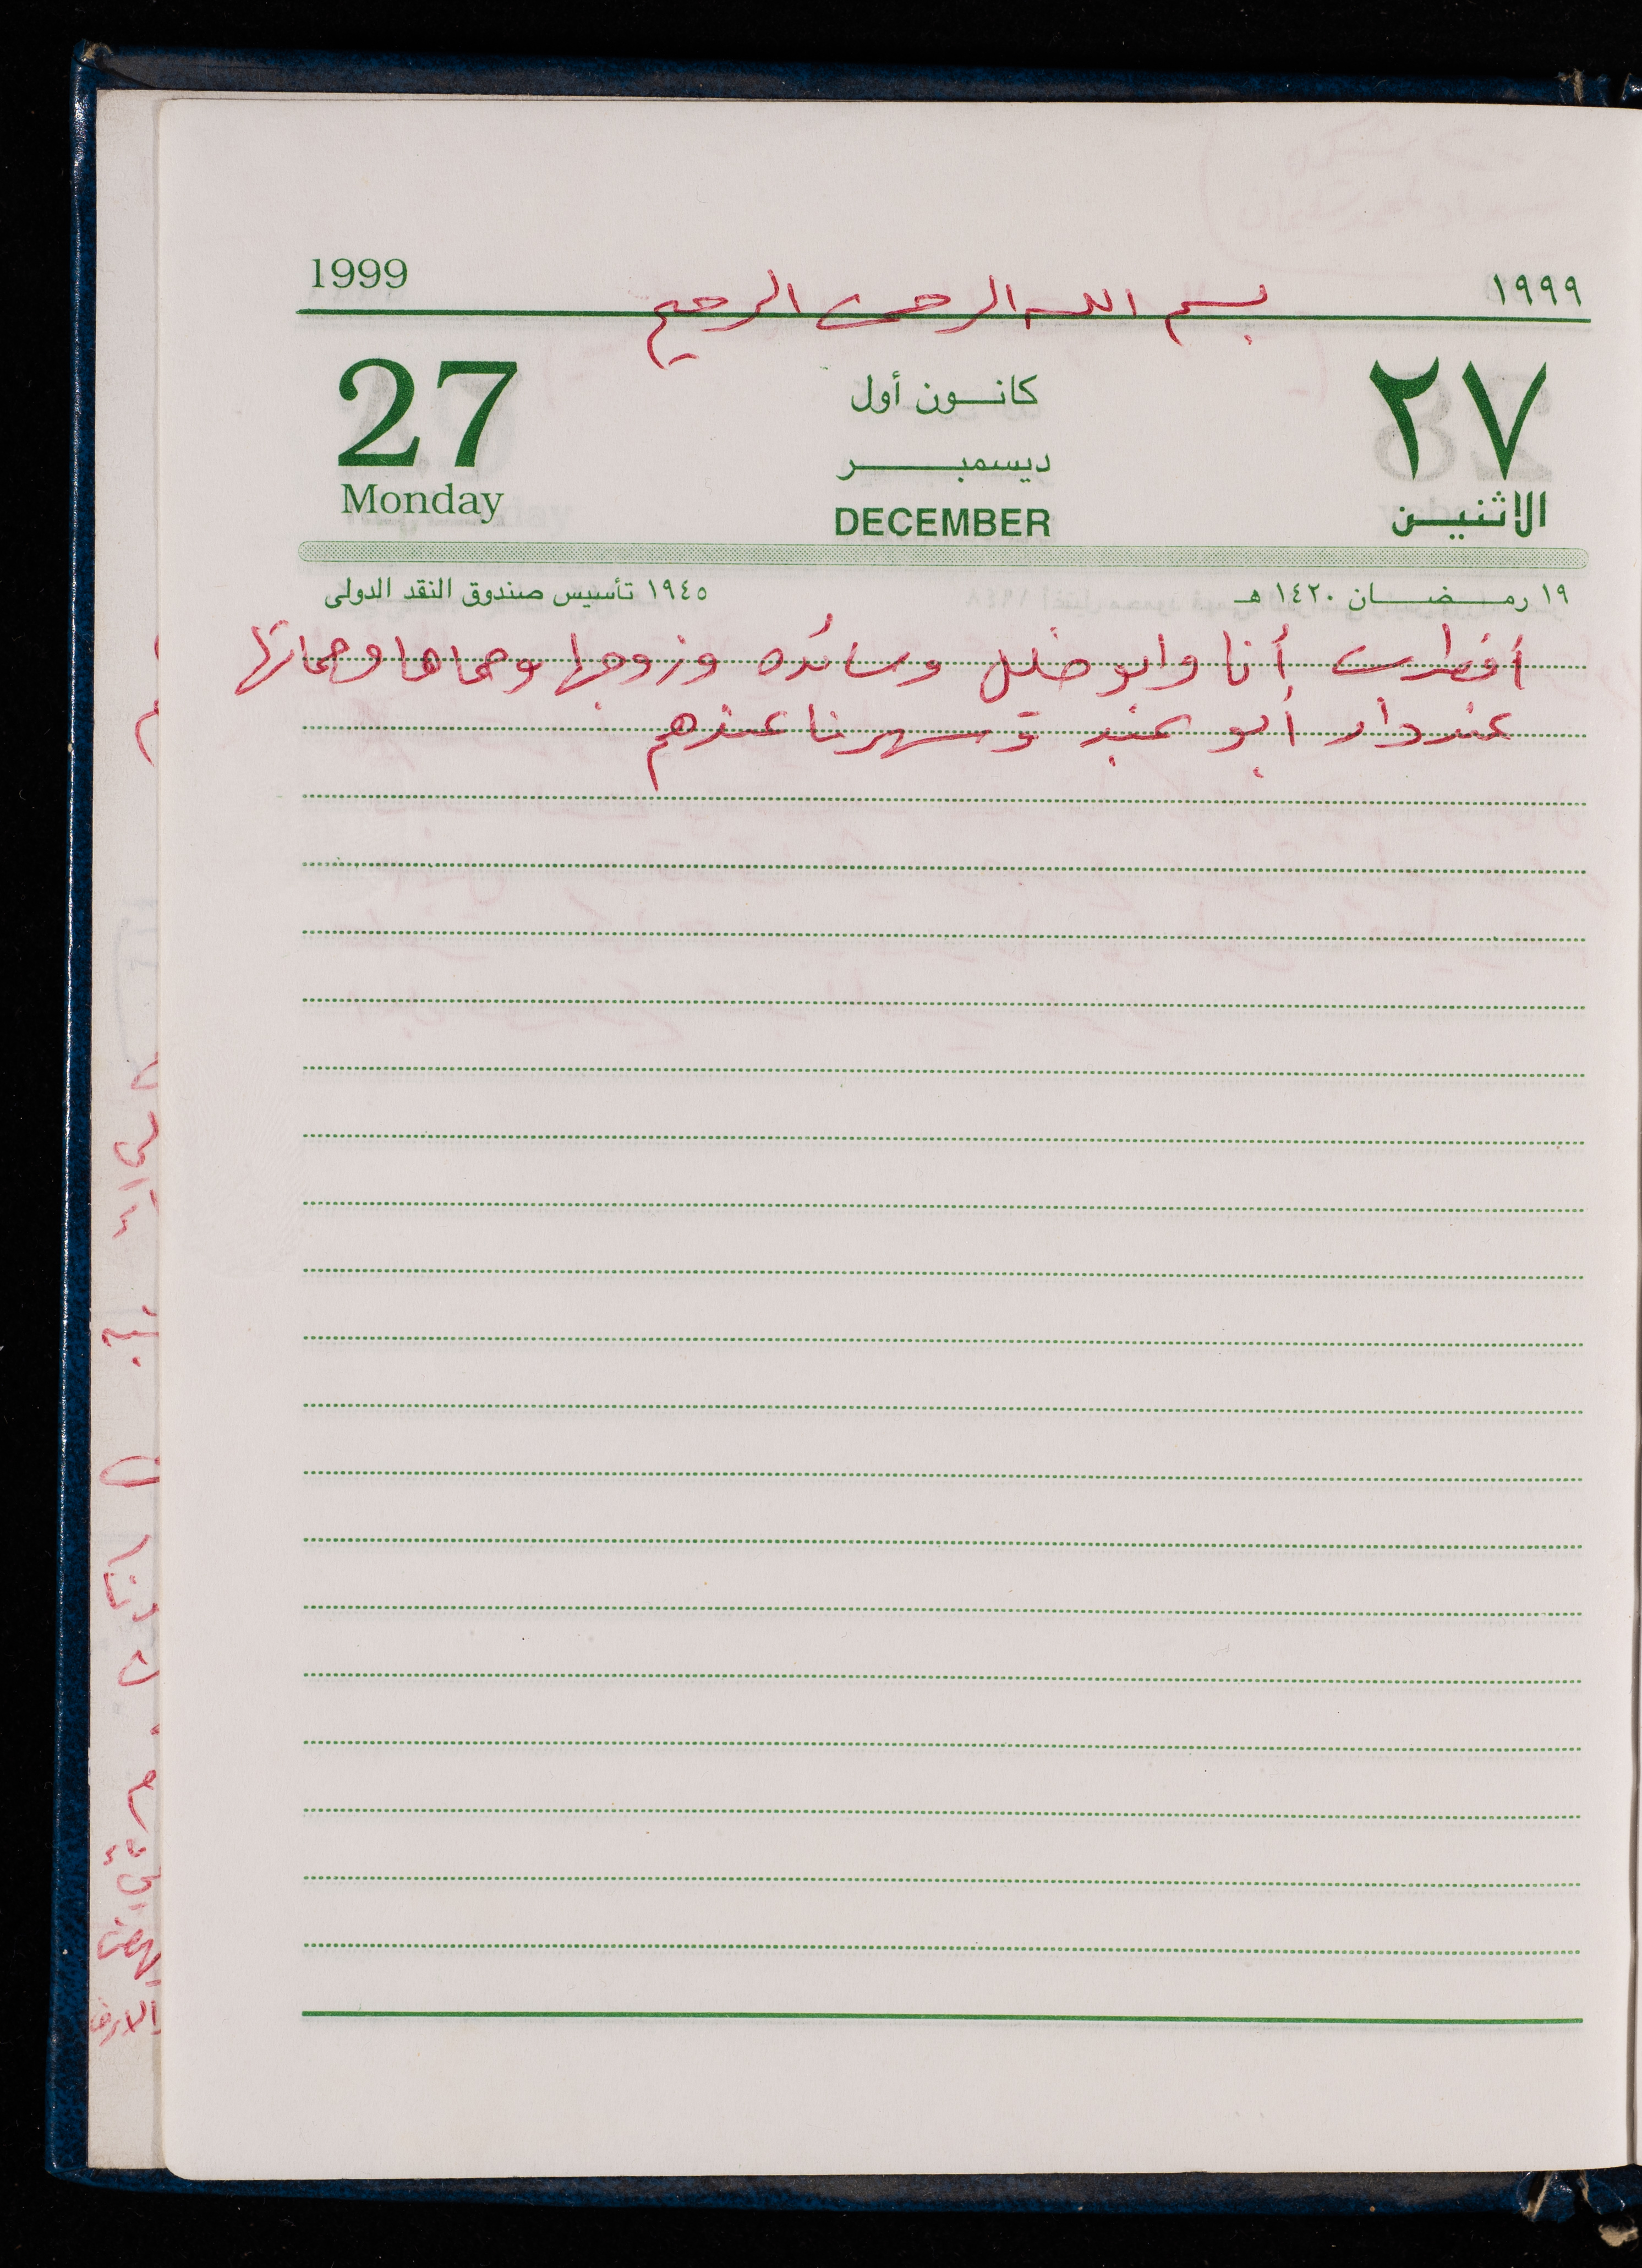 1999 ١٩٩٩
بسم الله الرحمن الرحيم
27 كانون أول ٢٧
ديسمبر
Monday DECEMBER الاثنين
١٩ رمضان ١٤٢٠ هـ ١٩٤٥ تأسيس صندوق النقد الدولى
أفطرت أنا وابو خليل وسائده وزوجها وحماها وحماتها
عند دار أبو عبد وسهرنا عندهم